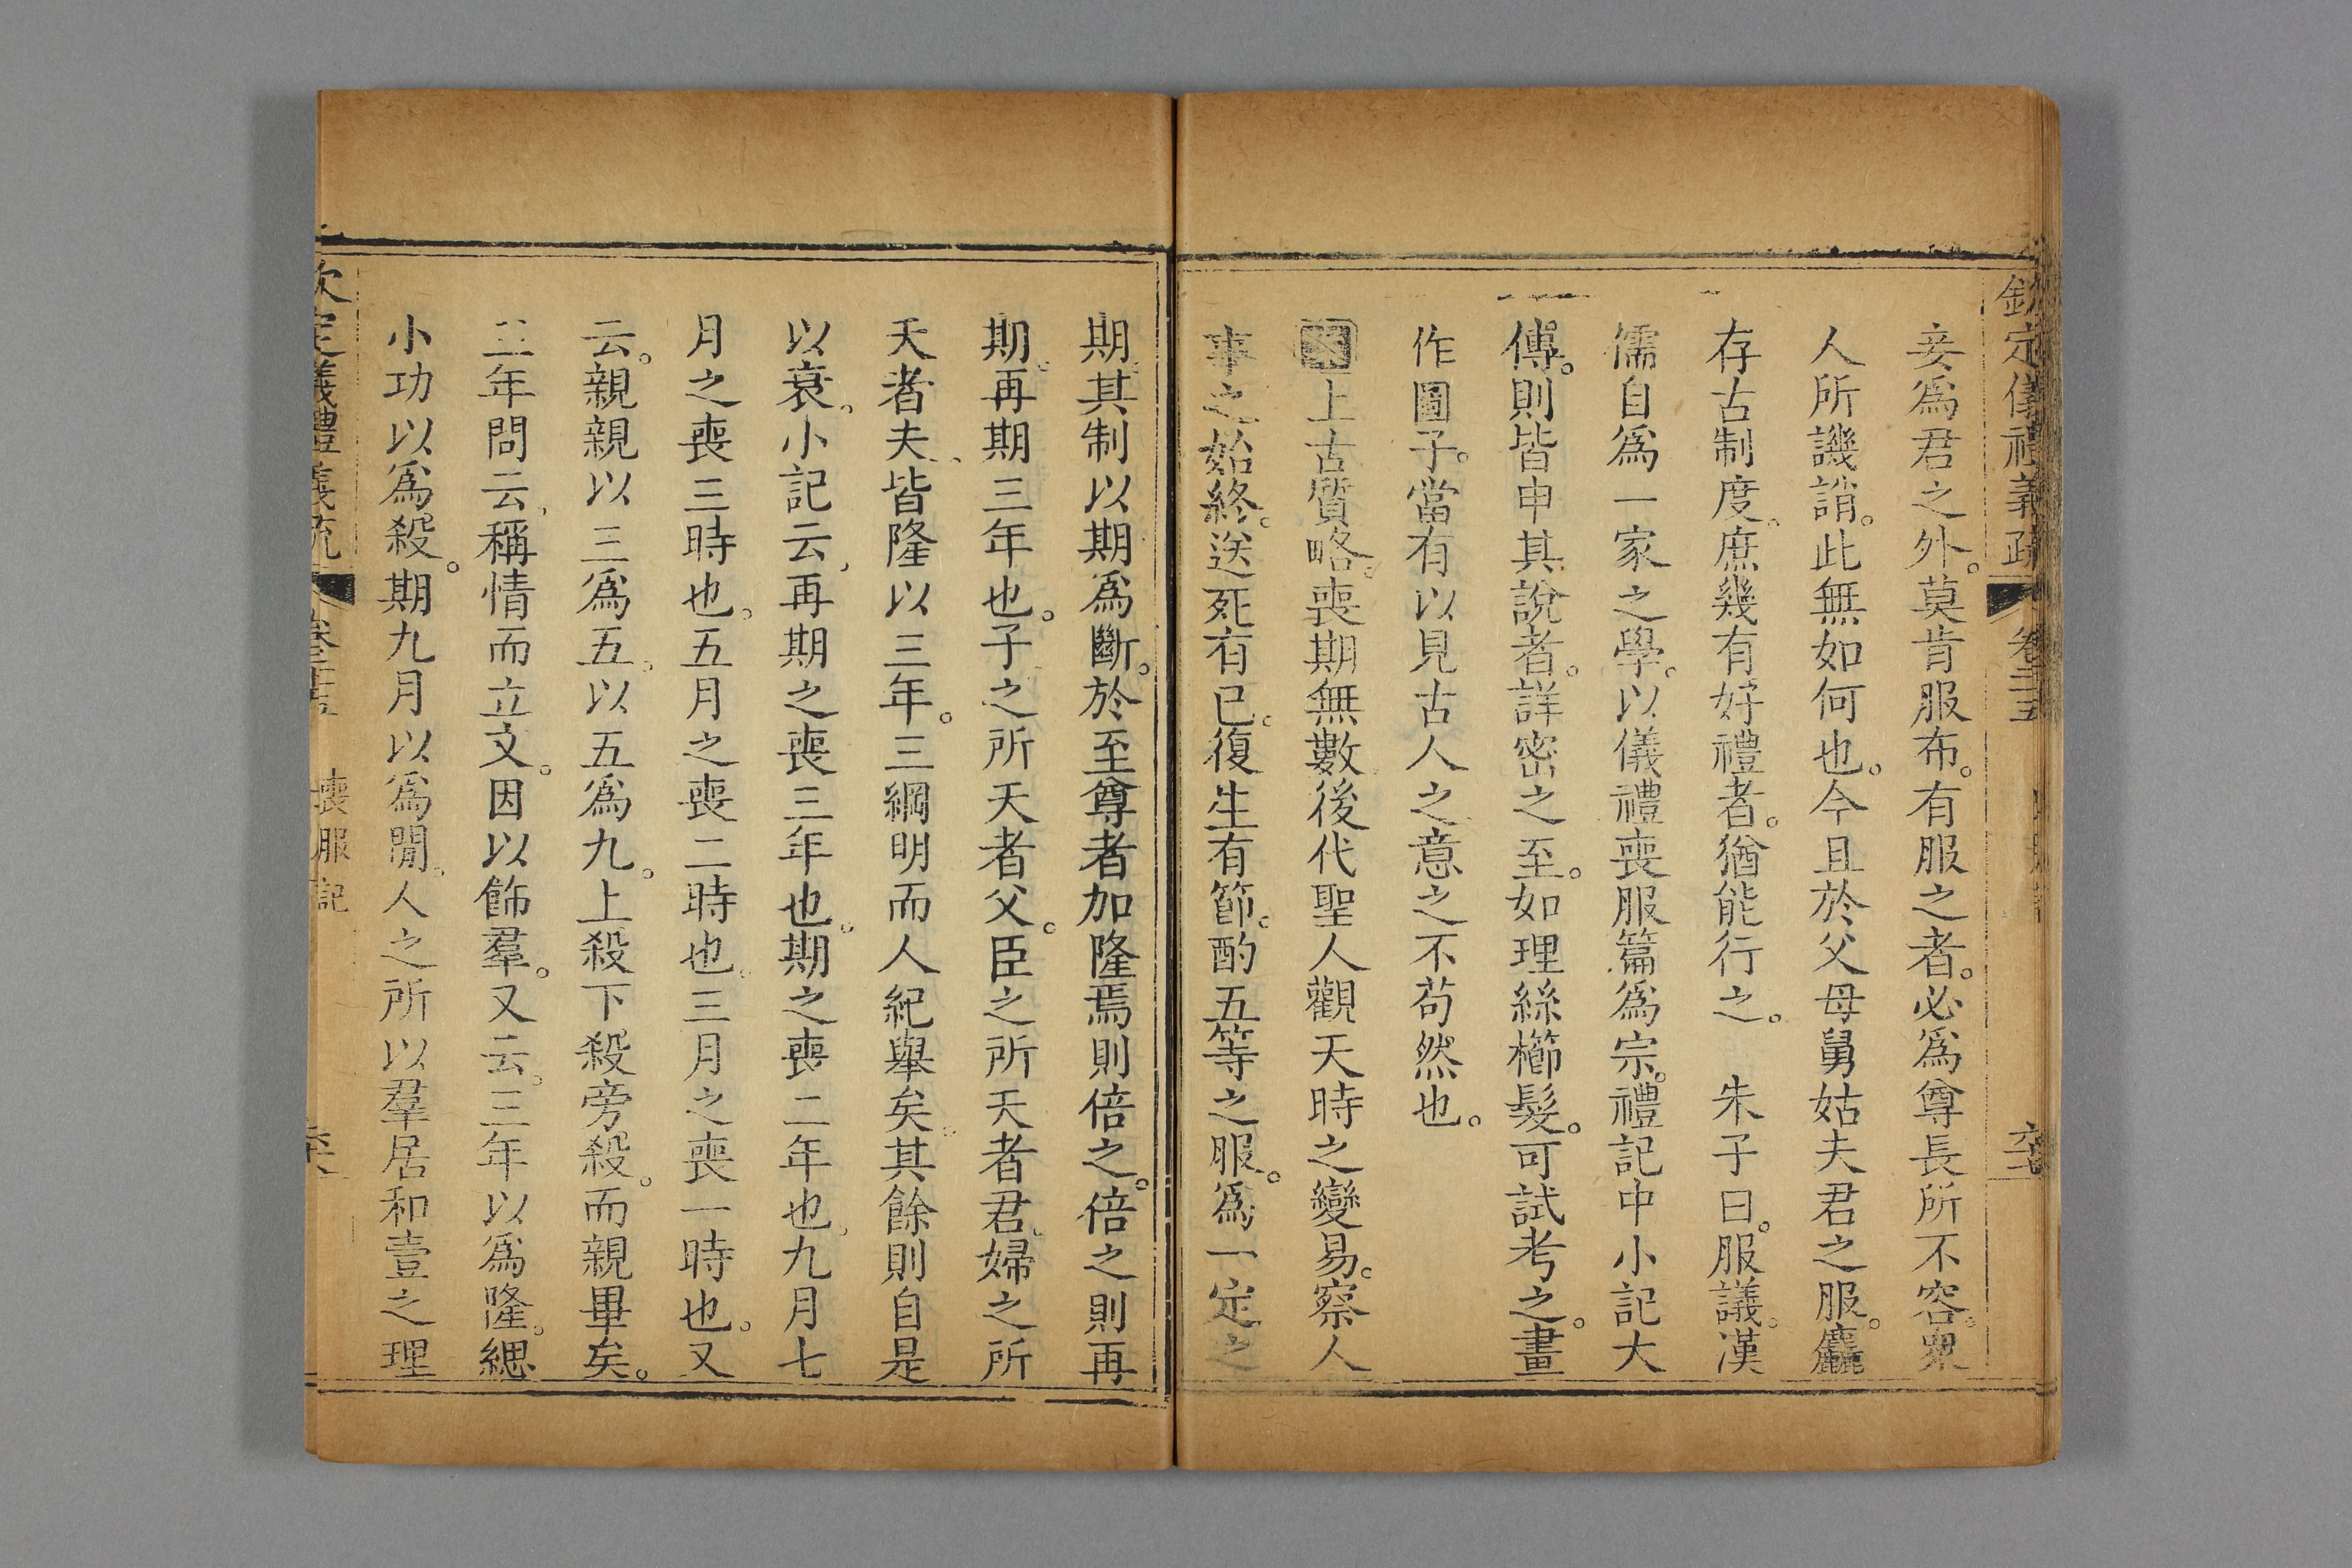 欽定儀禮義疏 卷二十五
妾爲君之外。莫肯服布。有服之者。必爲尊長所不容。衆
人所譏誚。此無如何也。今且於父母舅姑夫君之服。麤
存古制度。庶幾有好禮者。猶能行之。 朱子曰。服議。漢
儒自爲一家之學。以儀禮喪服篇爲宗。禮記中小記大
傳。則皆申其說者。詳密之至。如理絲櫛髮。可試考之。畫
作圖子。當有以見古人之意之不苟然也。
上古質略。喪期無數。後代聖人觀天時之變易。察人
事之始終。送死有已。復生有節。酌五等之服。爲一定之
期。其制以期爲斷。於至尊者加隆焉則倍之。倍之則再
期。再期三年也。子之所天者父。臣之所天者君。婦之所
天者夫。皆隆以三年。三綱明而人紀舉矣。其餘則自是
以衰。小記云。再期之喪三年也。期之喪二年也。九月七
月之喪三時也。五月之喪二時也。三月之喪一時也。又
云。親親以三爲五。以五爲九。上殺下殺旁殺。而親畢矣。
三年問云。稱情而立文。因以飾羣。又云。三年以爲隆。緦
小功以爲殺。期九月以爲閒。人之所以羣居和壹之理
欽定儀禮義疏 喪服記